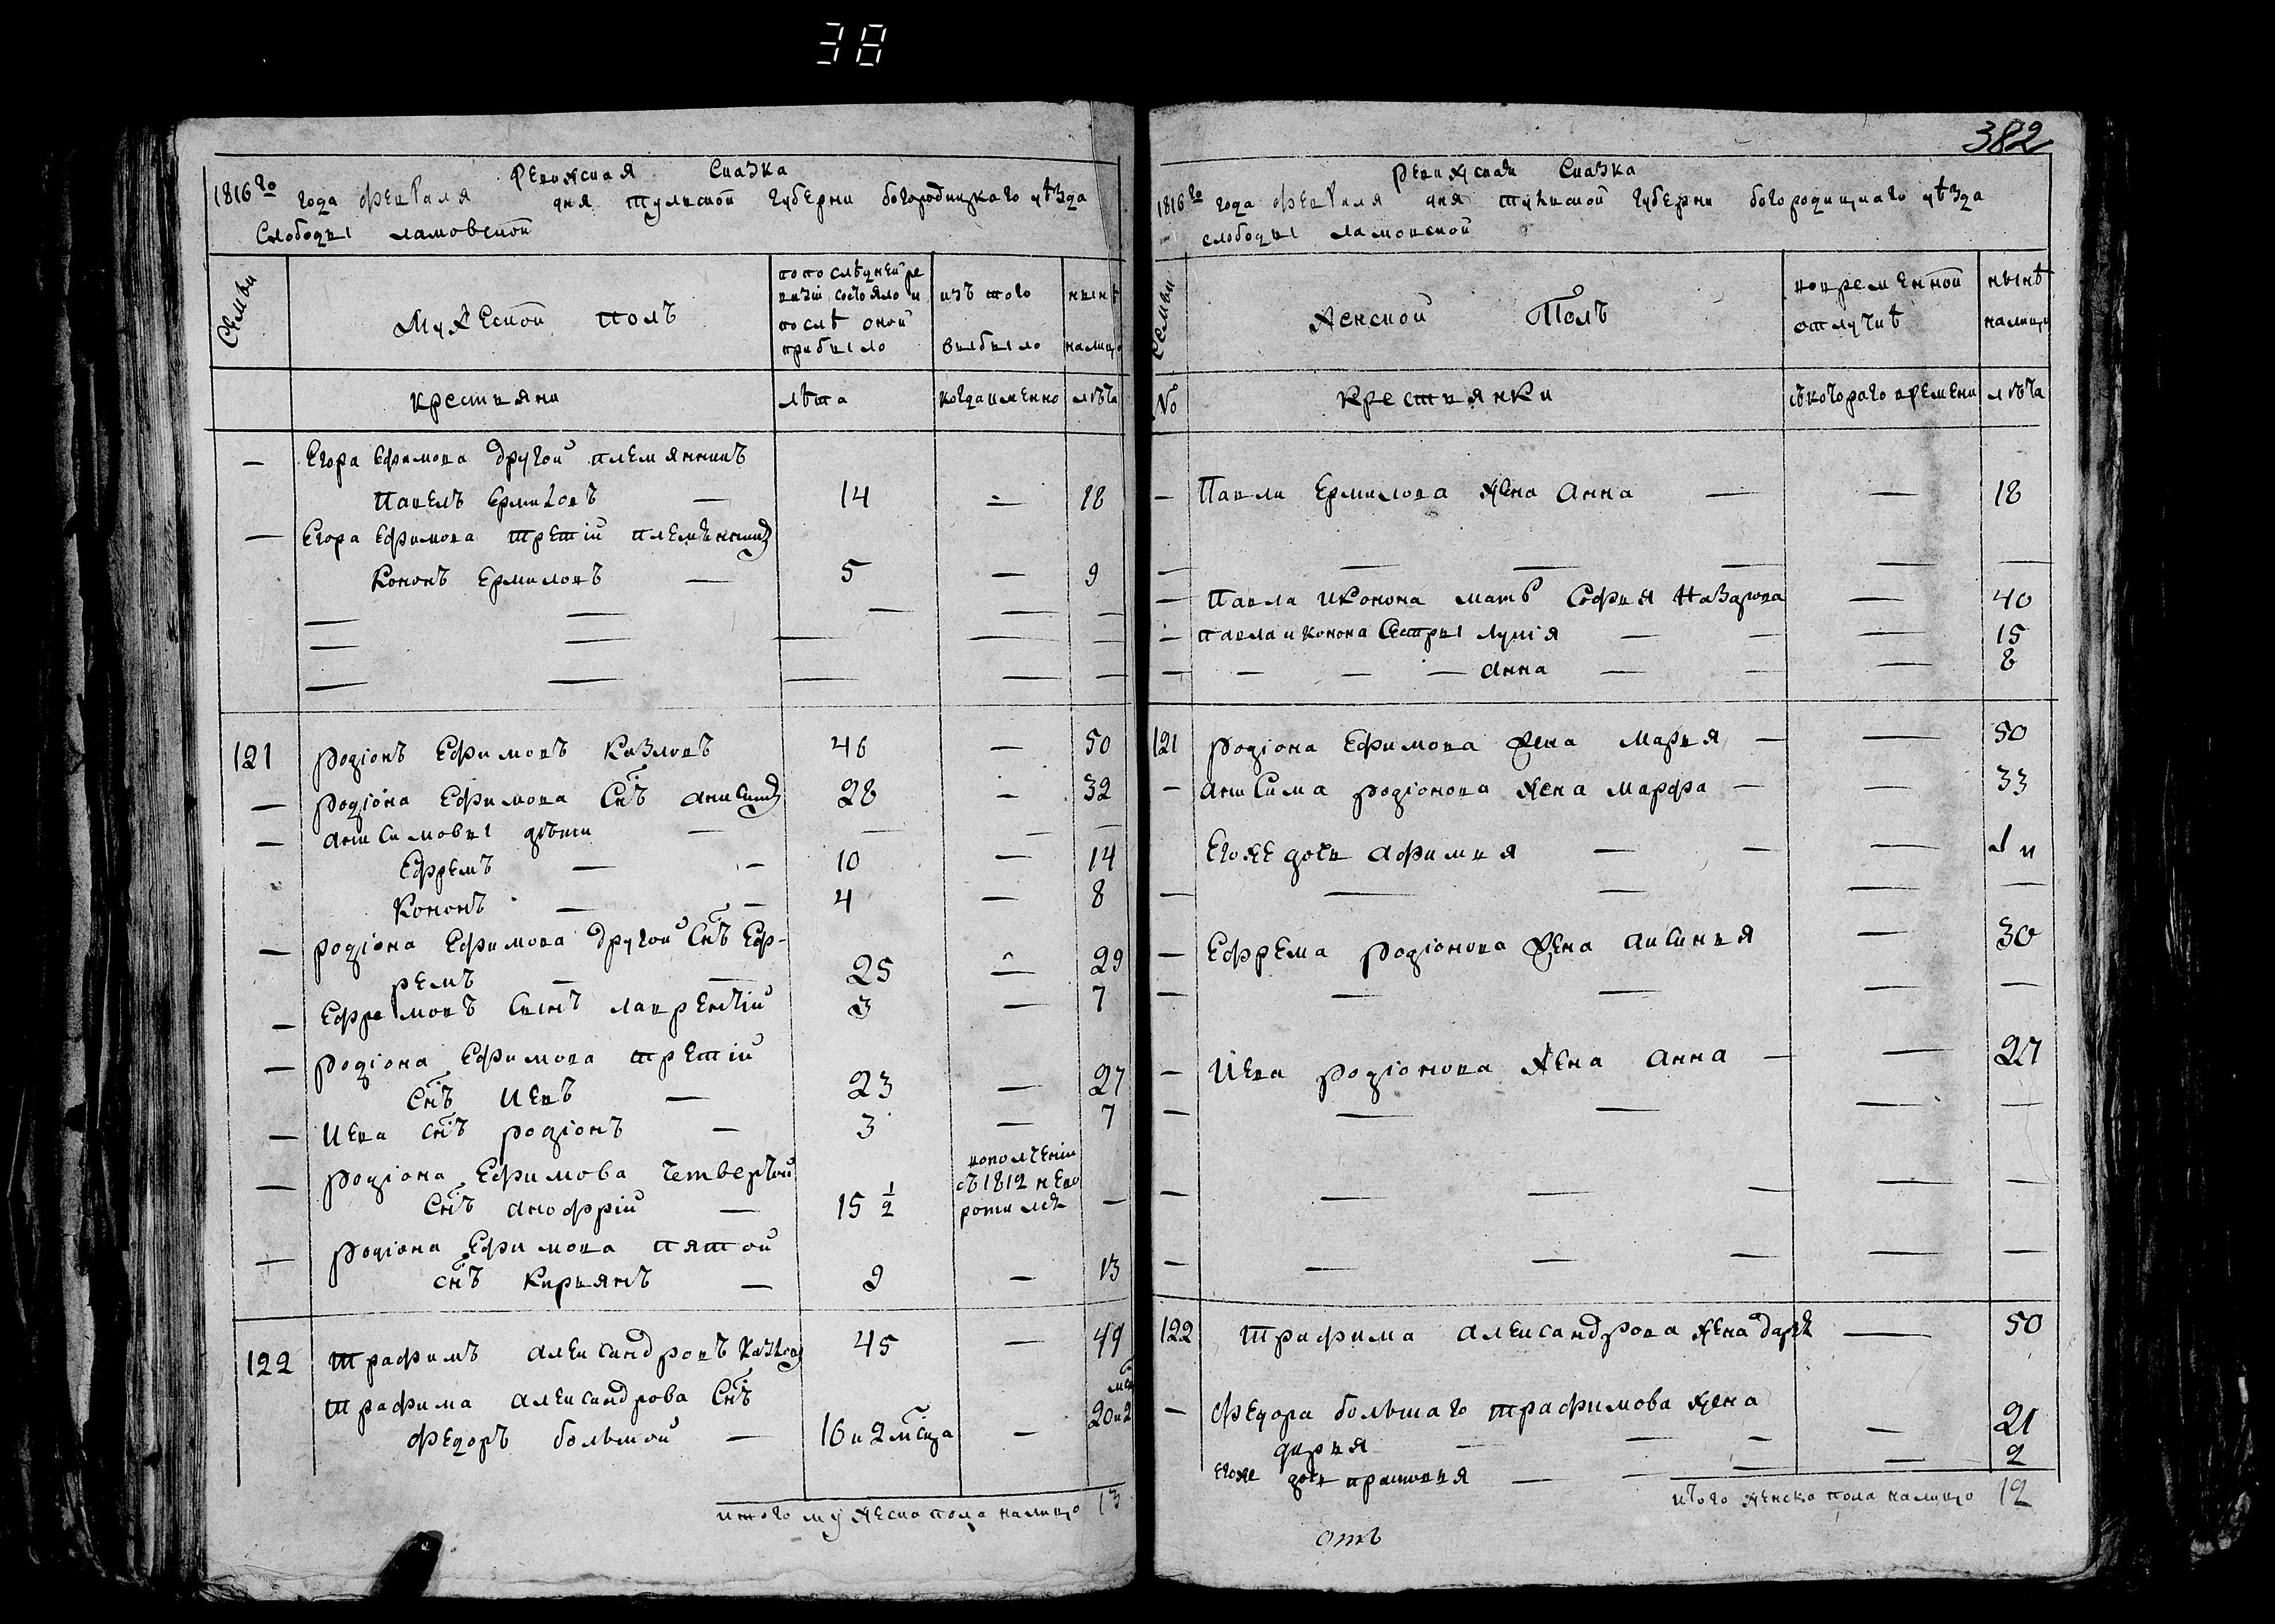 38
382
Ревижская Сказка
1816го года февраля дня тульской губерни богородицкаго уѣзда
Слободы ламовской
Семьи
Мужеской полъ
по послѣдней ре
визіи состояло и
послѣ оной
прибыло
изъ того
выбыло
нынѣ
налицо
крестьяни
лѣта
когда именно
лѣта
— Егора Ефимова другой племянникъ
Павелъ Ермиловъ — 14 — 18
— Егора Ефимова третій племянникъ
Кононъ Ермиловъ — 5 — 9
121 родіонъ Ефимовъ Казловъ 46 — 50
— родіона Ефимова Снъ анисимъ 28 — 32
— анисимовы дѣти — — — —
Ефремъ — — 10 — 14
Кононъ — — 4 — 8
— родіона Ефимова другой Снъ Еф-
ремъ — — 25 — 29
— Ефремовъ Сынъ лаврентій 3 — 7
— родіона Ефимова третій
Снъ Иевъ — 23 — 27
— Иева снъ родіонъ — 3 — 7
— родіона Ефимова четвертой
Снъ анофрій — 15 1/2 —
вополченіи
съ 1812 нево
ротился
— родіона Ефимова пятой
снъ Кирьянъ — 9 — 13
122 трафимъ александровъ Казловъ 45 — 49
трафима александрова Снъ
федоръ большой — 16 и 2 мсца — 20 и 2 мсц
итого мужеска пола налицо 13
Ревижская Сказка
1816го года февраля дня тульской губерни богородицкаго уѣзда
слободы ламовской
Семьи
Женской Полъ
вовременной
отлучкѣ
нынѣ
налицо
№
Крестьянки
съкотораго времени
лѣта
— Павла Ермилова жена анна — — 18
— — — — — —
— Павла и Конона мать Софья Назарова — 40
— павла и конона Сестры лукія — — — 15
— — — — анна — — — 8
121 родіона Ефимова жена марья — — 50
— анисима родіонова жена марфа — — 33
Егоже дочь афимья — — — 1 н
— — — — —
— Ефрема родіонова жена аксинья — 30
— — — — —
— Иева родіонова жена анна — — 27
— — — — —
— — — — — —
— — — — — —
122 трафима александрова жена дарья — 50
— федора большаго трафимова жена
дарья — — — — 21
Егоже дочь прасковья — — — — 2
итого женска пола налицо 12
отъ